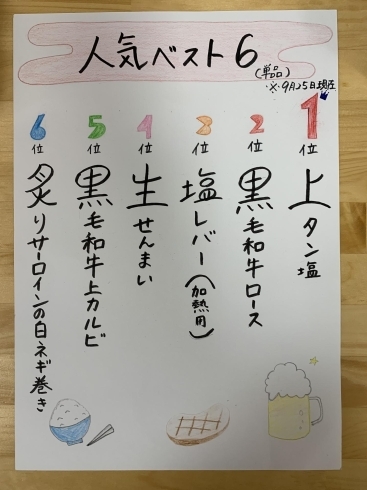 人気ベスト6
(単品)
※9月25日現在
1位
上タン塩
2位
黒毛和牛ロース
3位
塩レバー(加熱用)
4位
生せんまい
5位
黒毛和牛上カルビ
6位
炙りサーロインの白ネギ巻き